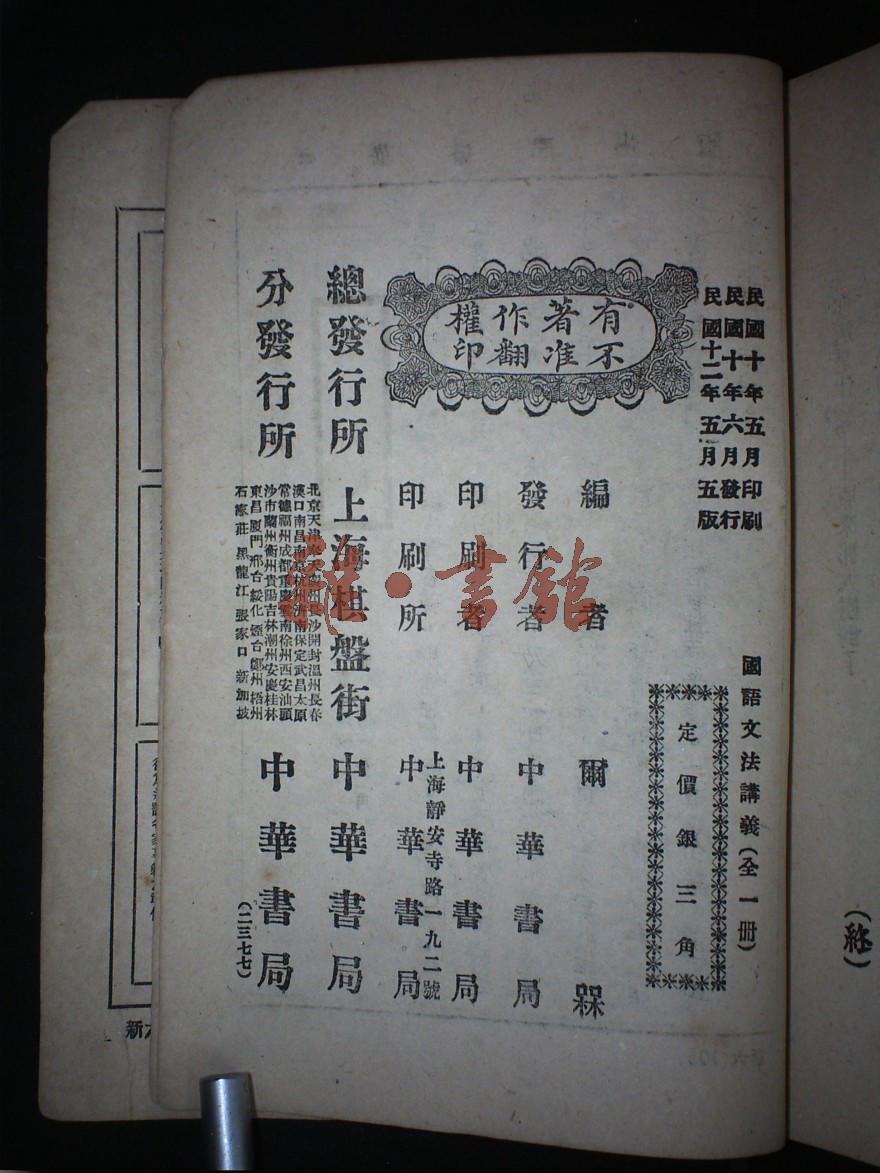 民國十年五月印刷
民國十年六月發行
民國十二年五月五版
國語文法講義(全一冊)
定價銀三角
有著作權
不准翻印
編者 爾槑
發行者 中華書局
印刷者 中華書局
印刷所 上海靜安寺路一九二號 中華書局
總發行所 上海棋盤街 中華書局
分發行所
北京天津奉天州長沙開封溫州長春
漢口南昌南京杭州濟南保定武昌太原
常德福州成都重慶雲南徐州西安汕頭
沙市蘭州衡州貴陽吉林潮州安慶桂林
東昌廈門邢台綏化煙台鄭州梧州
石家莊 黑龍江 張家口 新加坡
中華書局
(二三七七)
書館